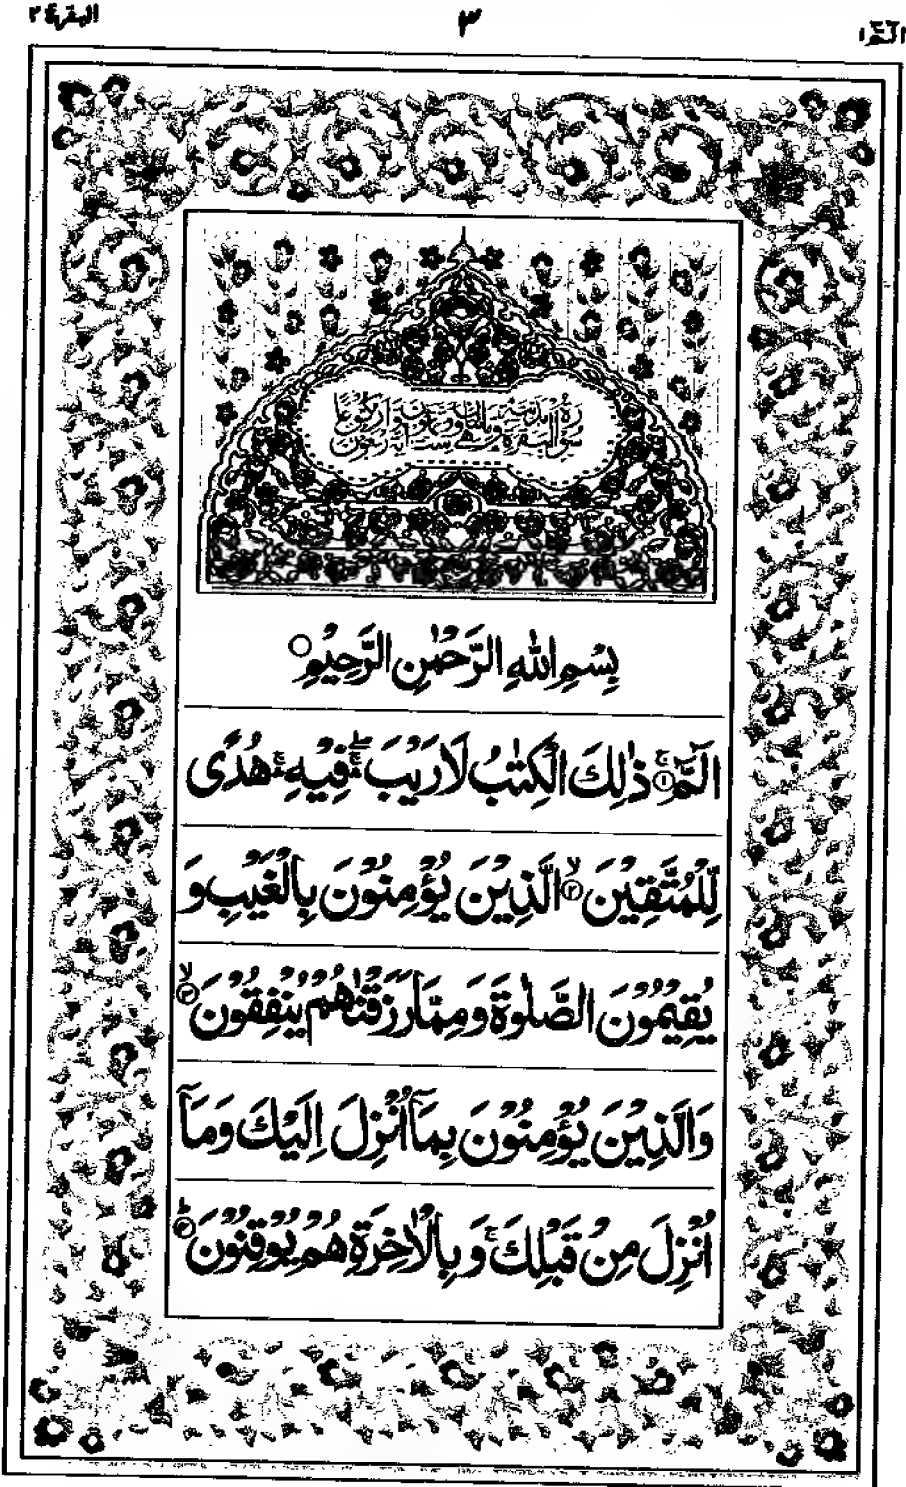 الٓمّٓ ١
٣
البقرة ٢
سورة البقرة مدنية وهي مائتان وست وثمانون اية واربعون ركوعا
بِسْمِ اللّٰهِ الرَّحْمٰنِ الرَّحِيْمِ ○
الٓمّٓ ۚ﴿۱﴾ ذٰلِكَ الْكِتٰبُ لَا رَيْبَ ۛۖۚ فِيْهِ ۛۚ هُدًى
لِّلْمُتَّقِيْنَ ۙ﴿۲﴾ الَّذِيْنَ يُؤْمِنُوْنَ بِالْغَيْبِ وَ
يُقِيْمُوْنَ الصَّلٰوةَ وَمِمَّا رَزَقْنٰهُمْ يُنْفِقُوْنَ ۙ﴿۳﴾
وَالَّذِيْنَ يُؤْمِنُوْنَ بِمَآ اُنْزِلَ اِلَيْكَ وَمَآ
اُنْزِلَ مِنْ قَبْلِكَ ۚ وَبِالْاٰخِرَةِ هُمْ يُوْقِنُوْنَ ؕ﴿۴﴾